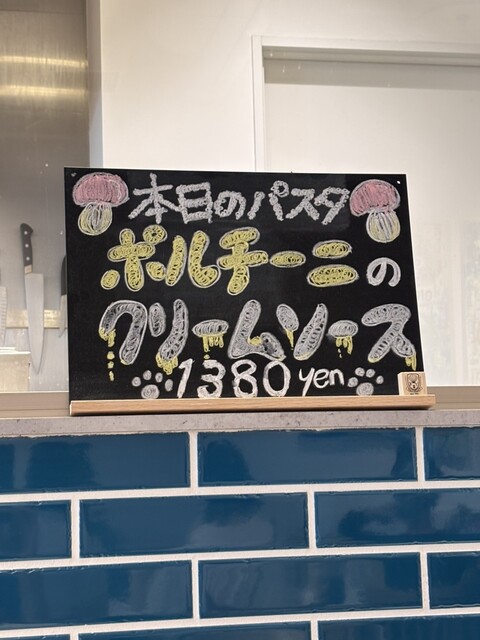 本日のパスタ
ポルチーニの
クリームソース
1380 yen